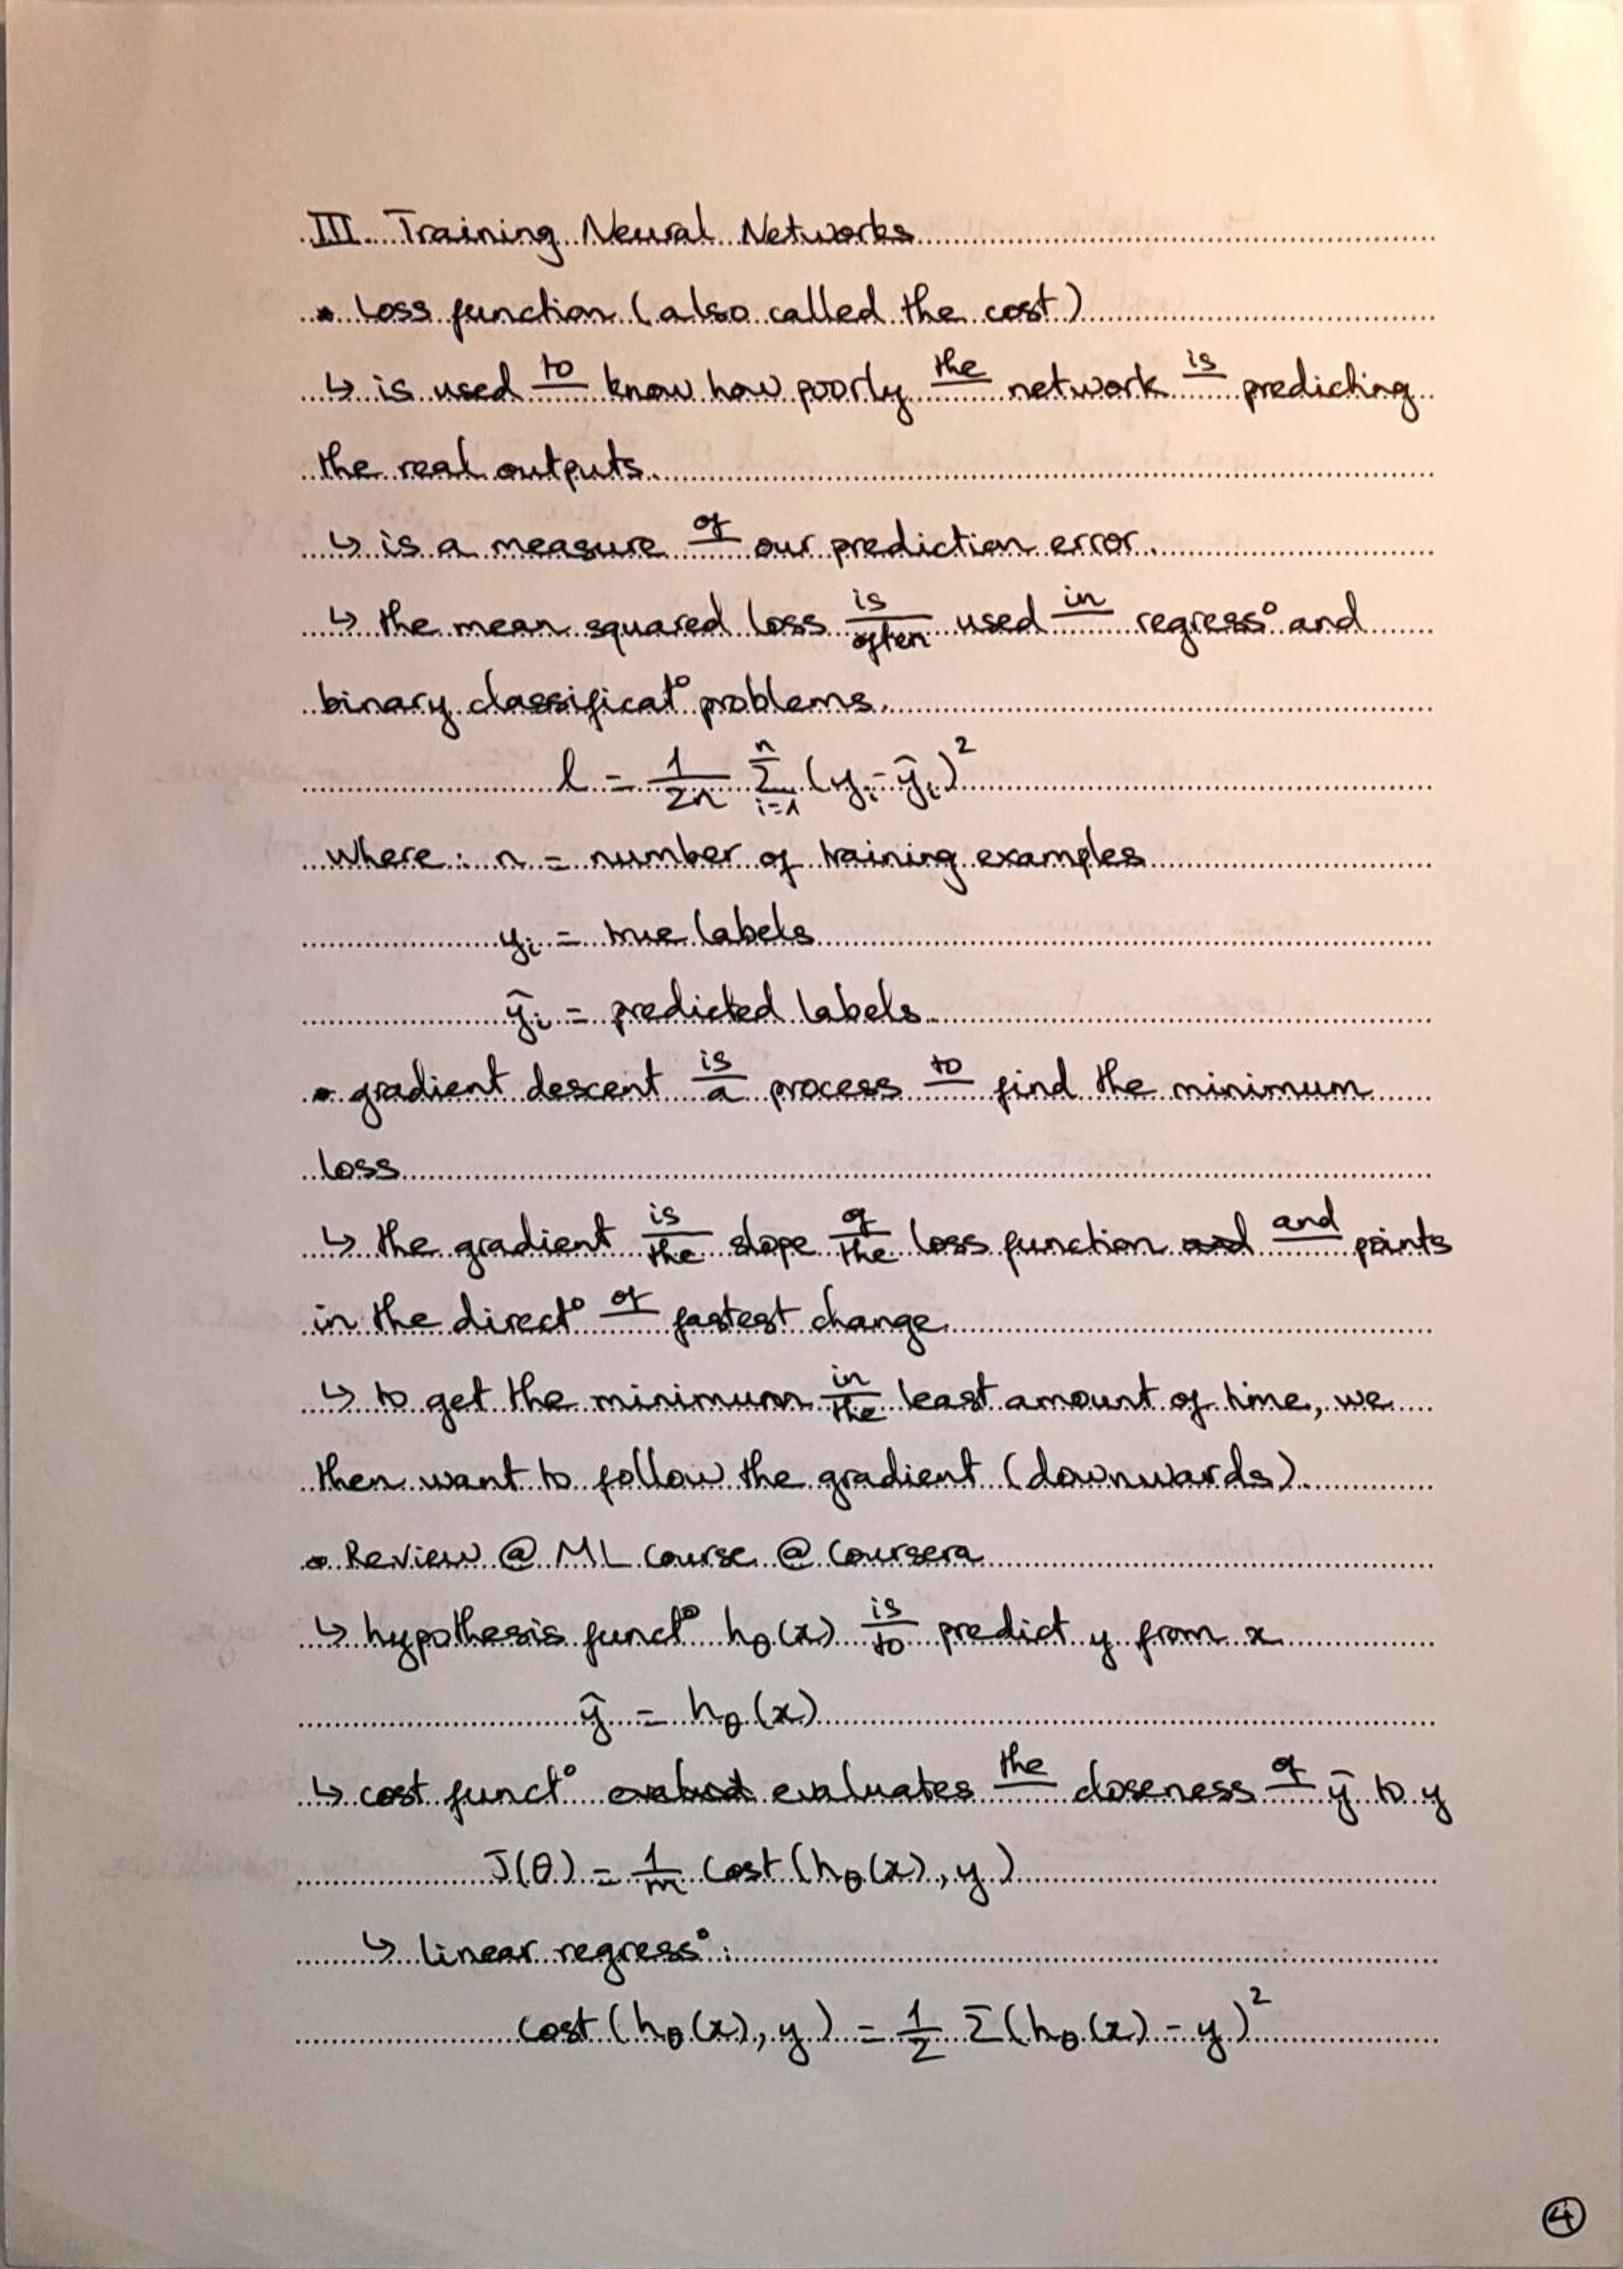 III. Training Neural Networks
• Loss function (also called the cost)
↳ is used to know how poorly the network is predicting
the real outputs.
↳ is a measure of our prediction error.
↳ the mean squared loss is often used in regress° and
binary classificat° problems.
l = 1/2n Σ_{i=1}^{n} (y_i - ŷ_i)²
where : n = number of training examples
y_i = true labels
ŷ_i = predicted labels
• gradient descent is a process to find the minimum
loss
↳ the gradient is the slope of the loss function and points
in the direct° of fastest change
↳ to get the minimum in the least amount of time, we
then want to follow the gradient (downwards).
• Review @ ML course @ Coursera
↳ hypothesis funct° h_θ(x) is to predict y from x
ŷ = h_θ(x)
↳ cost funct° evaluates the closeness of ŷ to y
J(θ) = 1/m Cost(h_θ(x), y)
↳ linear regress° :
Cost(h_θ(x), y) = 1/2 Σ(h_θ(x) - y)²
4